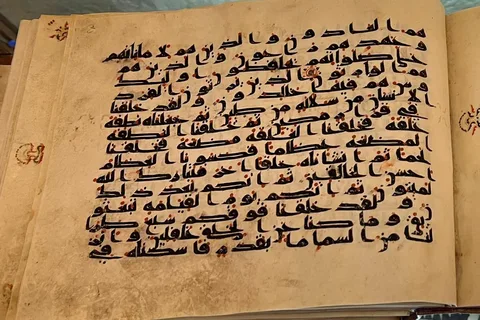 هم العادون والذين هم لامانتهم
وعهدهم راعون والذين هم
على صلواتهم يحافظون اولئك
هم الوارثون الذين يرثون الفردو
س هم فيها خلدون ولقد خلقنا
الانسن من سللة من طين ثم جعلناه نطفة
في قرار مكين ثم خلقنا النطفة
علقة فخلقنا العلقة مضغة فخلقنا
المضغة عظاما فكسونا العظام
لحما ثم انشاناه خلقا اخر فتبارك الله
احسن الخالقين ثم انكم بعد ذلك
لميتون ثم انكم يوم القيامة تبعثو
ن ولقد خلقنا فوقكم سبع طرا
ئق وما كنا عن الخلق غافلين وانز
لنا من السما ما بقدر فاسكناه في